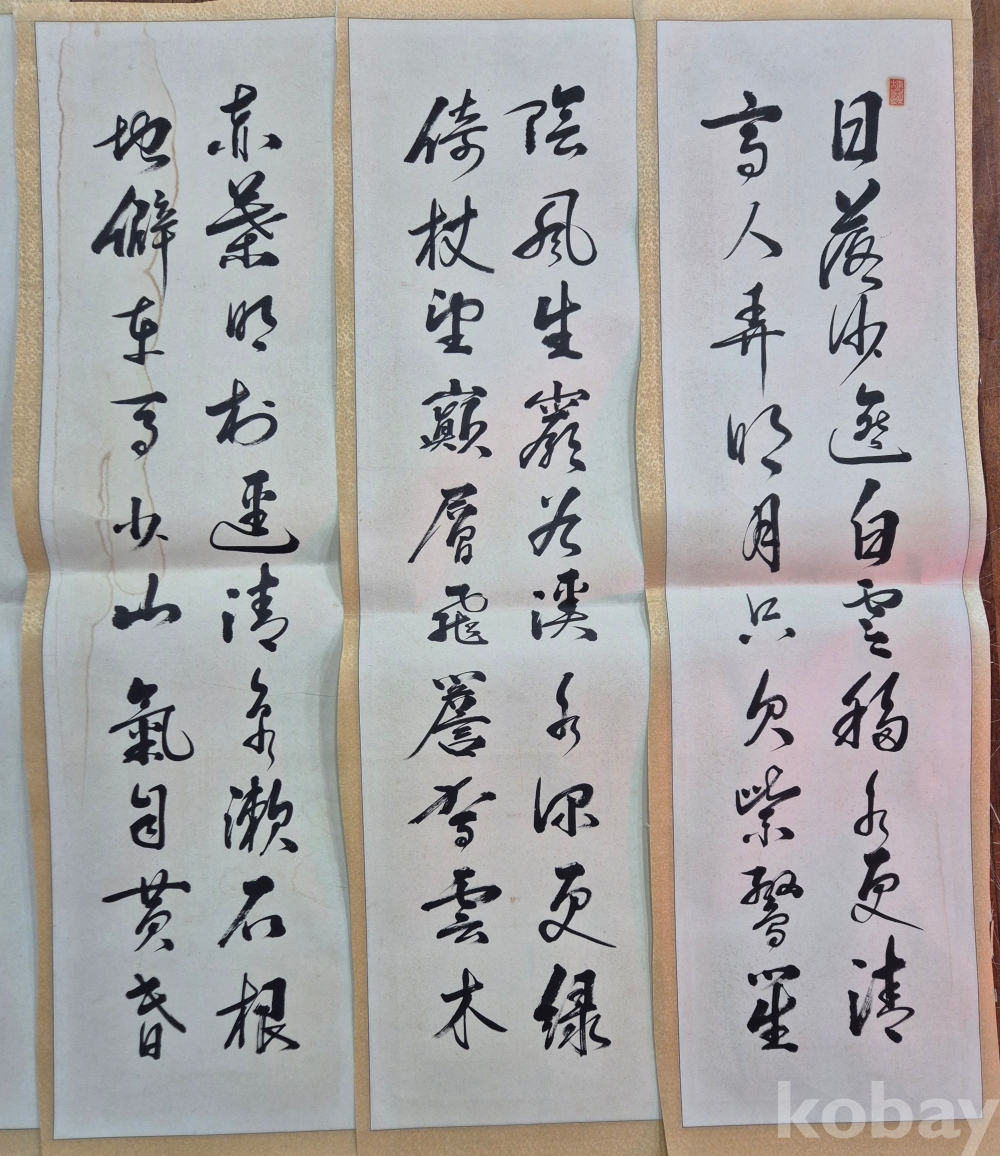 日落沙逾白雲移水更清
高人弄明月只欠紫鸞笙
陰風生巖谷溪水深更綠
倚杖望巔層飛簷架雲木
赤葉明村逕清泉漱石根
地僻車馬少山氣自黃昏
kobay